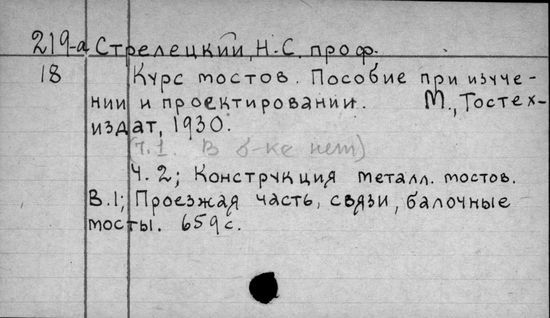 219-а Стрелецкий, Н.С. проф.
18 Курс мостов. Пособие при изуче-
нии и проектировании. М., Гостех-
издат, 1930.
(Ч.1. В б-ке нет)
Ч.2; Конструкция металл. мостов.
В.1; Проезжая часть, связи, балочные
мосты. 659с.